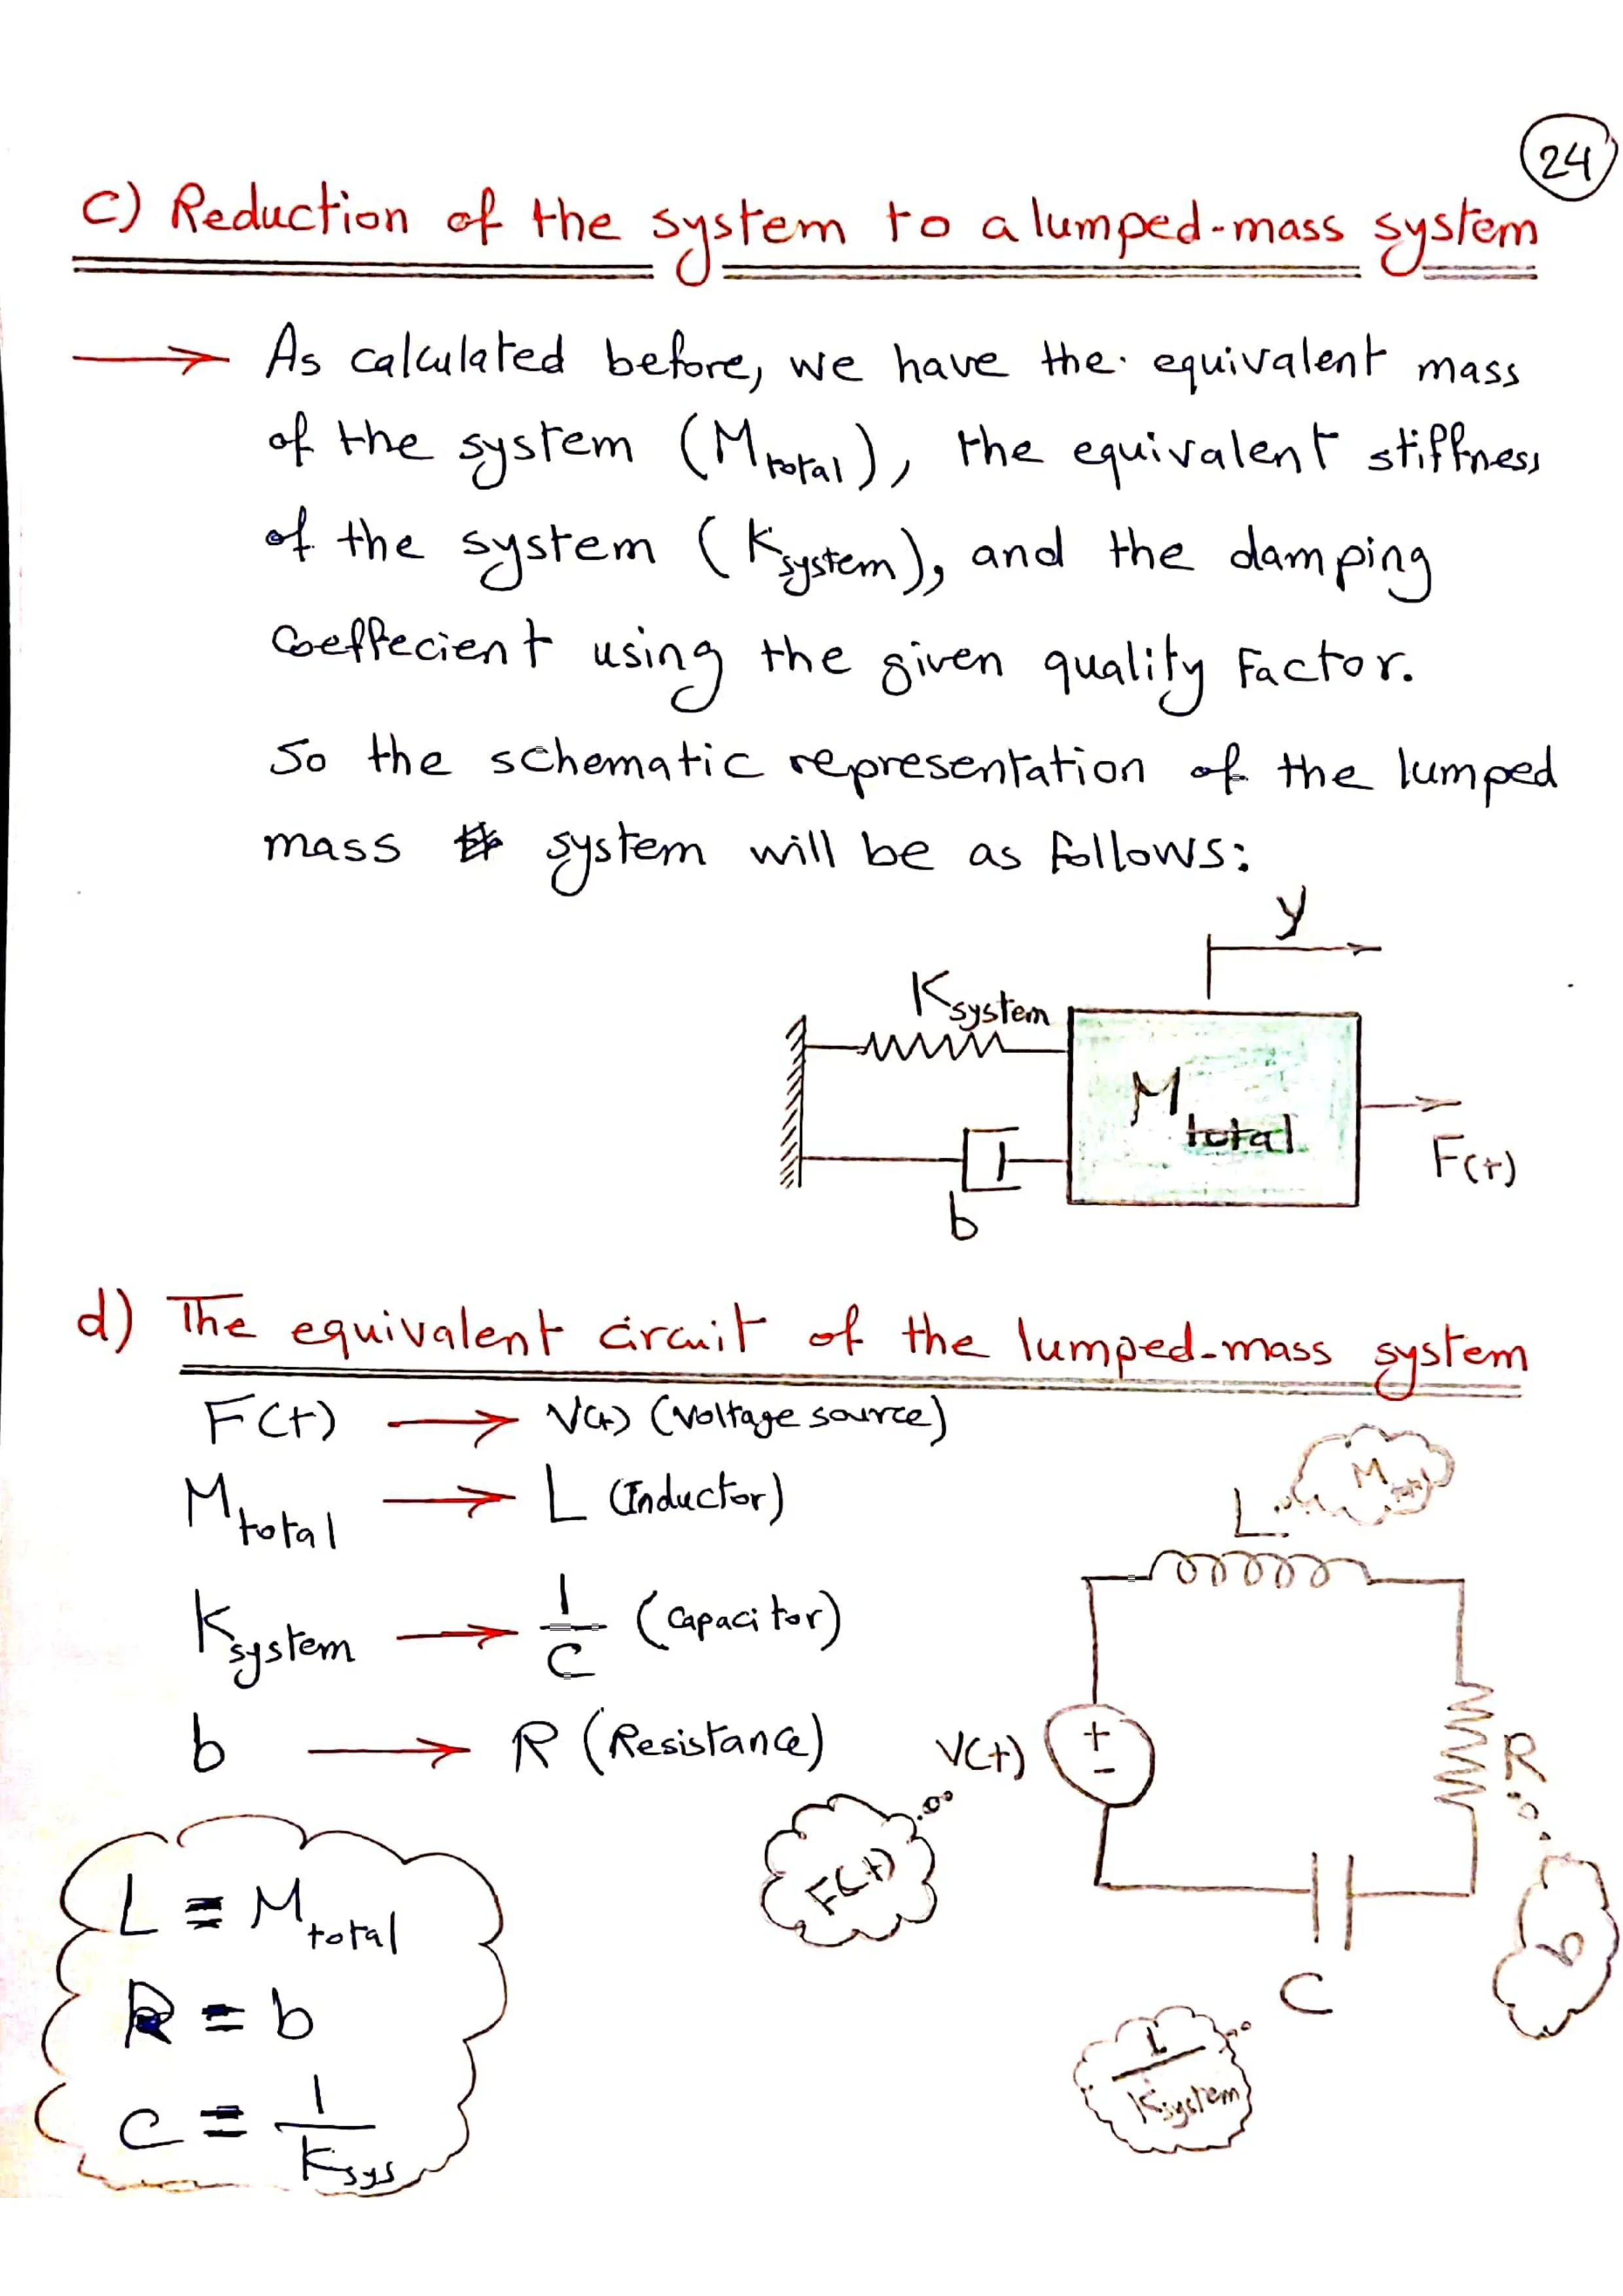 24
c) Reduction of the system to a lumped-mass system
As calculated before, we have the equivalent mass
of the system (Mtotal), the equivalent stiffness
of the system (Ksystem), and the damping
Coeffecient using the given quality Factor.
So the schematic representation of the lumped
mass system will be as follows:
y
Ksystem
Mtotal
F(t)
b
d) The equivalent circuit of the lumped-mass system
F(t) → V(t) (Voltage source)
Mtotal → L (Inductor)
Ksystem → 1/C (Capacitor)
b → R (Resistance)
L
Mtotal
V(t)
+
-
R
F(t)
b
C
1/Ksystem
L ≡ Mtotal
R ≡ b
C ≡ 1/Ksys